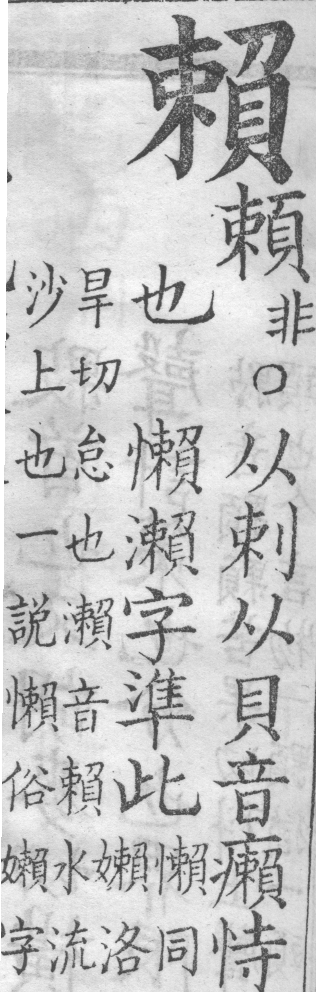 賴
頼非○从剌从貝音癩恃
也懶瀨字準此懶同嬾洛
旱切怠也瀨音賴水流
沙上也一説懶俗嬾字